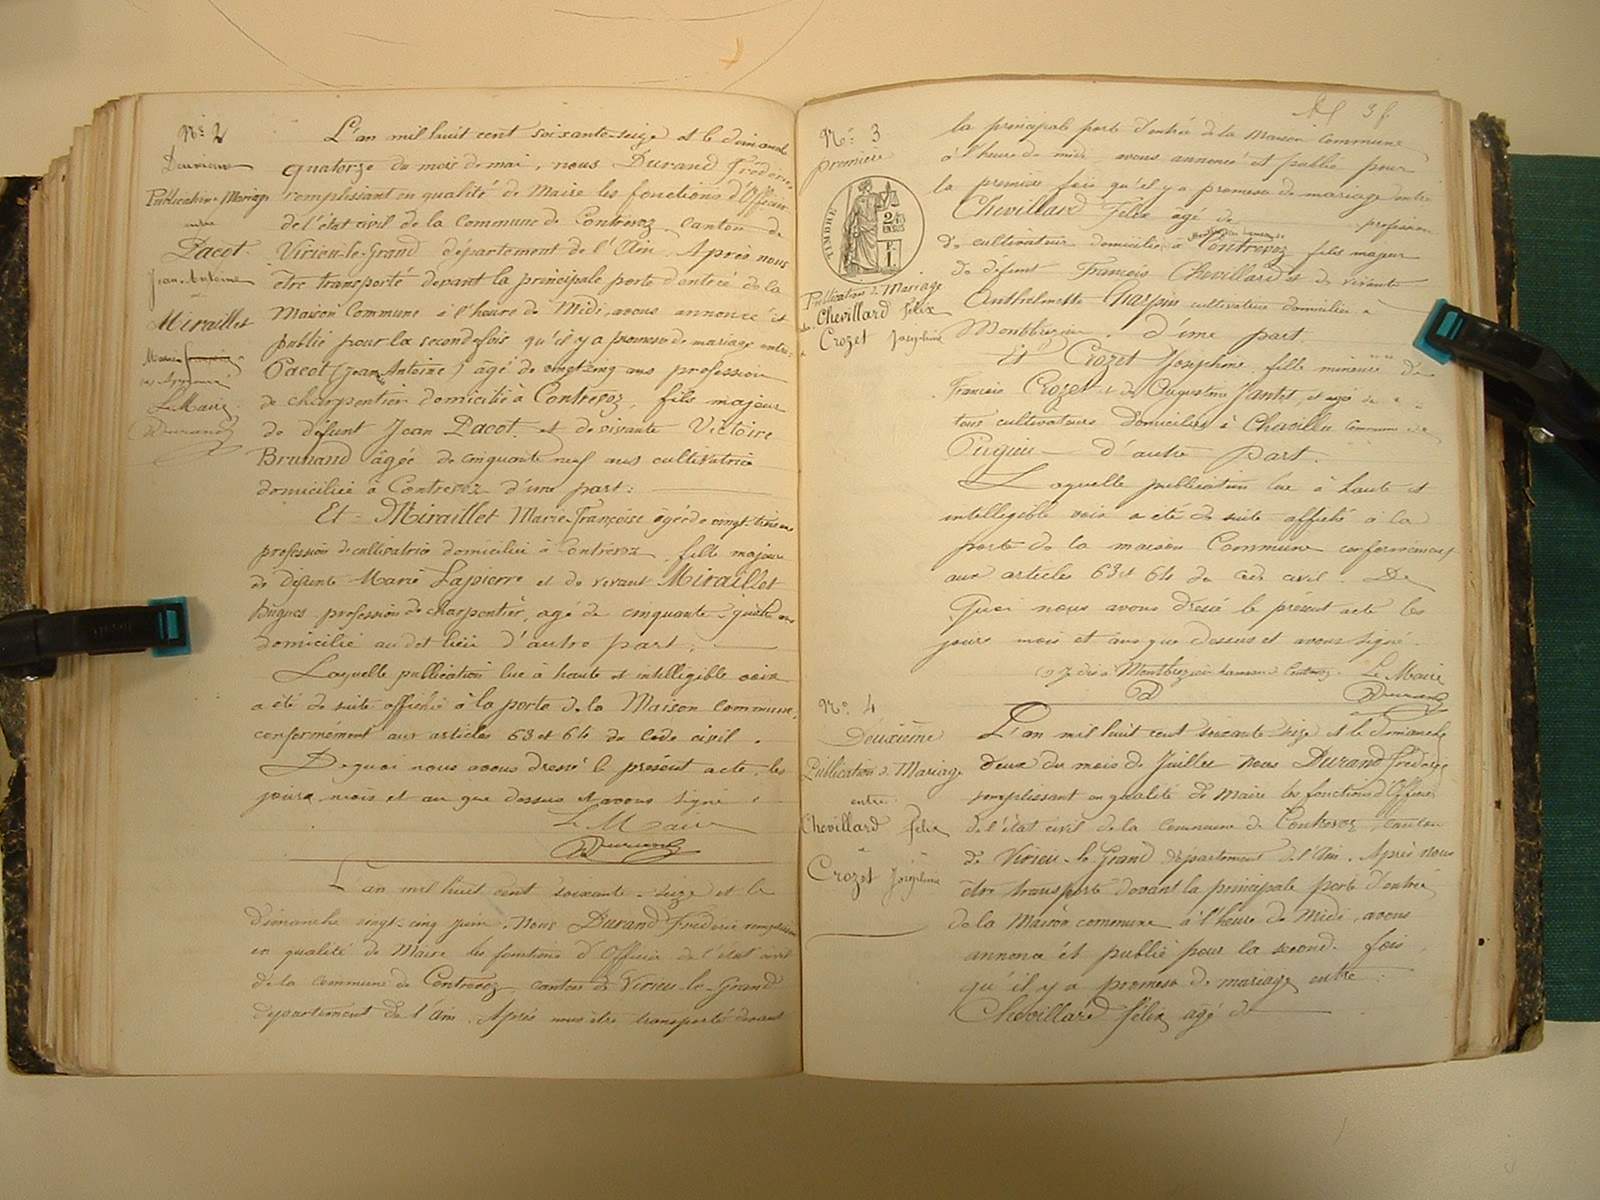 Nº 2
Deuxième
Publication de Mariage
entre
Pacot
Jean Antoine
et
Miraillet
Marie
Le Maire
Durand
L'an mil huit cent soixante-seize et le dimanche
quatorze du mois de mai, nous Durand Frédéric
remplissant en qualité de Maire les fonctions d'Officier
de l'état civil de la Commune de Contrevoz, canton de
Virieu-le-Grand département de l'Ain. Après nous
être transporté devant la principale porte d'entrée de la
Maison Commune à l'heure de Midi, avons annoncé et
publié pour la seconde fois qu'il y a promesse de mariage entre:
Pacot (Jean Antoine) âgé de vingt cinq ans profession
de charpentier domicilié à Contrevoz, fils majeur
de défunt Jean Pacot et de vivante Victoire
Brunand âgée de cinquante neuf ans cultivatrice
domiciliée à Contrevoz d'une part:
Et Miraillet Marie Françoise âgée de vingt-trois ans
profession de cultivatrice domiciliée à Contrevoz, fille majeure
de défunte Marie Lapierre et de vivant Miraillet
Hugues profession de charpentier, agé de cinquante quatre ans
domicilié au dit lieu d'autre part:
Laquelle publication lue à haute et intelligible voix
a été de suite affichée à la porte de la Maison Commune,
conformément aux articles 63 et 64 du Code civil.
De quoi nous avons dressé le présent acte, les
jours, mois et an que dessus et avons signé
Le Maire
Durand
L'an mil huit cent soixante-seize et le
dimanche vingt-cinq juin, Nous Durand Frédéric remplissant
en qualité de Maire les fonctions d'Officier de l'état civil
de la commune de Contrevoz, canton de Virieu-le-Grand
département de l'Ain. Après nous être transporté devant
Nº 3
première
TIMBRE
Publication de Mariage
Chevillard Félix
et
Crozet Joséphine
la principale porte d'entrée de la Maison Commune
à l'heure de midi avons annoncé et publié pour
la première fois qu'il y a promesse de mariage entre
Chevillard Félix agé de profession
de cultivateur domicilié à Contrevoz fils majeur
de défunt François Chevillard et de vivante
Anthelmette cultivatrice domiciliée à
Montbrezieu, d'une part.
Et Crozet Joséphine fille mineure de
François Crozet et de Augustine Jantet, et agé de
tous cultivateurs domiciliés à Chavillieu commune de
Pugieu d'autre part.
Laquelle publication lue à haute et
intelligible voix a été de suite affiché à la
porte de la maison Commune conformément
aux articles 63 et 64 du code civil. De
Quoi nous avons dressé le présent acte les
jours mois et ans que dessus et avons signé.
Montbrezieu hameau de Contrevoz. Le Maire
Durand
Nº 4
Deuxième
Publication de Mariage
entre
Chevillard Félix
et
Crozet Joséphine
L'an mil huit cent soixante seize et le dimanche
deux du mois de Juillet Nous Durand Frédéric
remplissant en qualité de Maire les fonctions d'Officier
de l'état civil de la commune de Contrevoz, canton
de Virieu-le-Grand département de l'Ain. Après nous
être transporté devant la principale porte d'entrée
de la Maison commune à l'heure de Midi, avons
annoncé et publié pour la seconde fois,
qu'il y a promesse de mariage entre:
Chevillard félix agé de